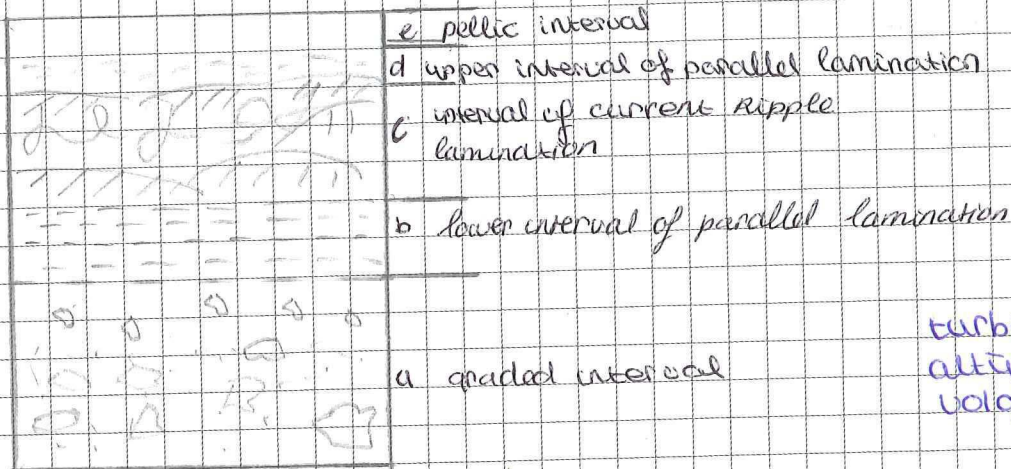 e pellic interval
d upper interval of parallel lamination
c interval of current Ripple
lamination
b lower interval of parallel lamination
a graded interval
turb
altı
volc